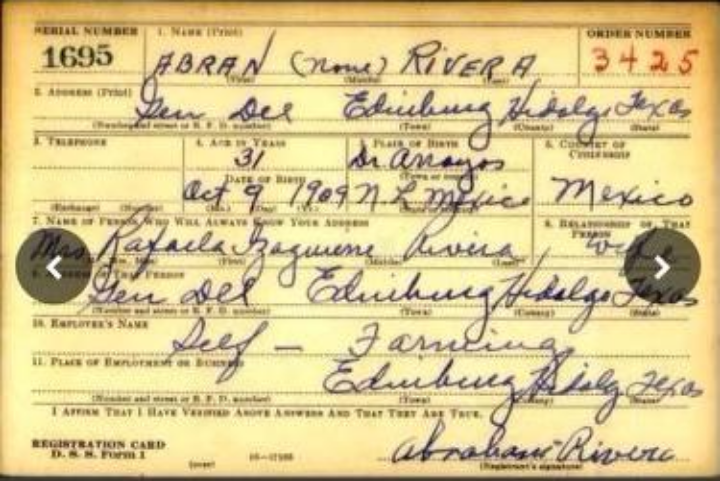 SERIAL NUMBER 1. NAME (Print) ORDER NUMBER
1695 ABRAN (none) RIVERA 3425
(First) (Middle) (Last)
2. ADDRESS (Print)
Gen Del Edinburg Hidalgo Texas
(Number and street or R. F. D. number) (Town) (County) (State)
3. TELEPHONE 4. AGE IN YEARS 5. PLACE OF BIRTH 6. COUNTRY OF
31 Dr. Arroyos CITIZENSHIP
DATE OF BIRTH (Town or county)
Oct 9 1909 N. L. Mexico Mexico
(Exchange) (Number) (Mo.) (Day) (Yr.)
7. NAME OF PERSON WHO WILL ALWAYS KNOW YOUR ADDRESS 8. RELATIONSHIP OF THAT
PERSON
Mrs Rafaela Rivera wife
(First) (Middle) (Last)
OF THAT PERSON
Gen Del Edinburg Hidalgo Texas
(Number and street or R. F. D. number) (Town) (County) (State)
10. EMPLOYER'S NAME
Self — Farming
11. PLACE OF EMPLOYMENT OR BUSINESS
Edinburg Hidalg Texas
(Number and street or R. F. D. number) (Town) (County) (State)
I AFFIRM THAT I HAVE VERIFIED ABOVE ANSWERS AND THAT THEY ARE TRUE.
REGISTRATION CARD
D. S. S. Form 1 Abraham Rivera
(over) (Registrant's signature)